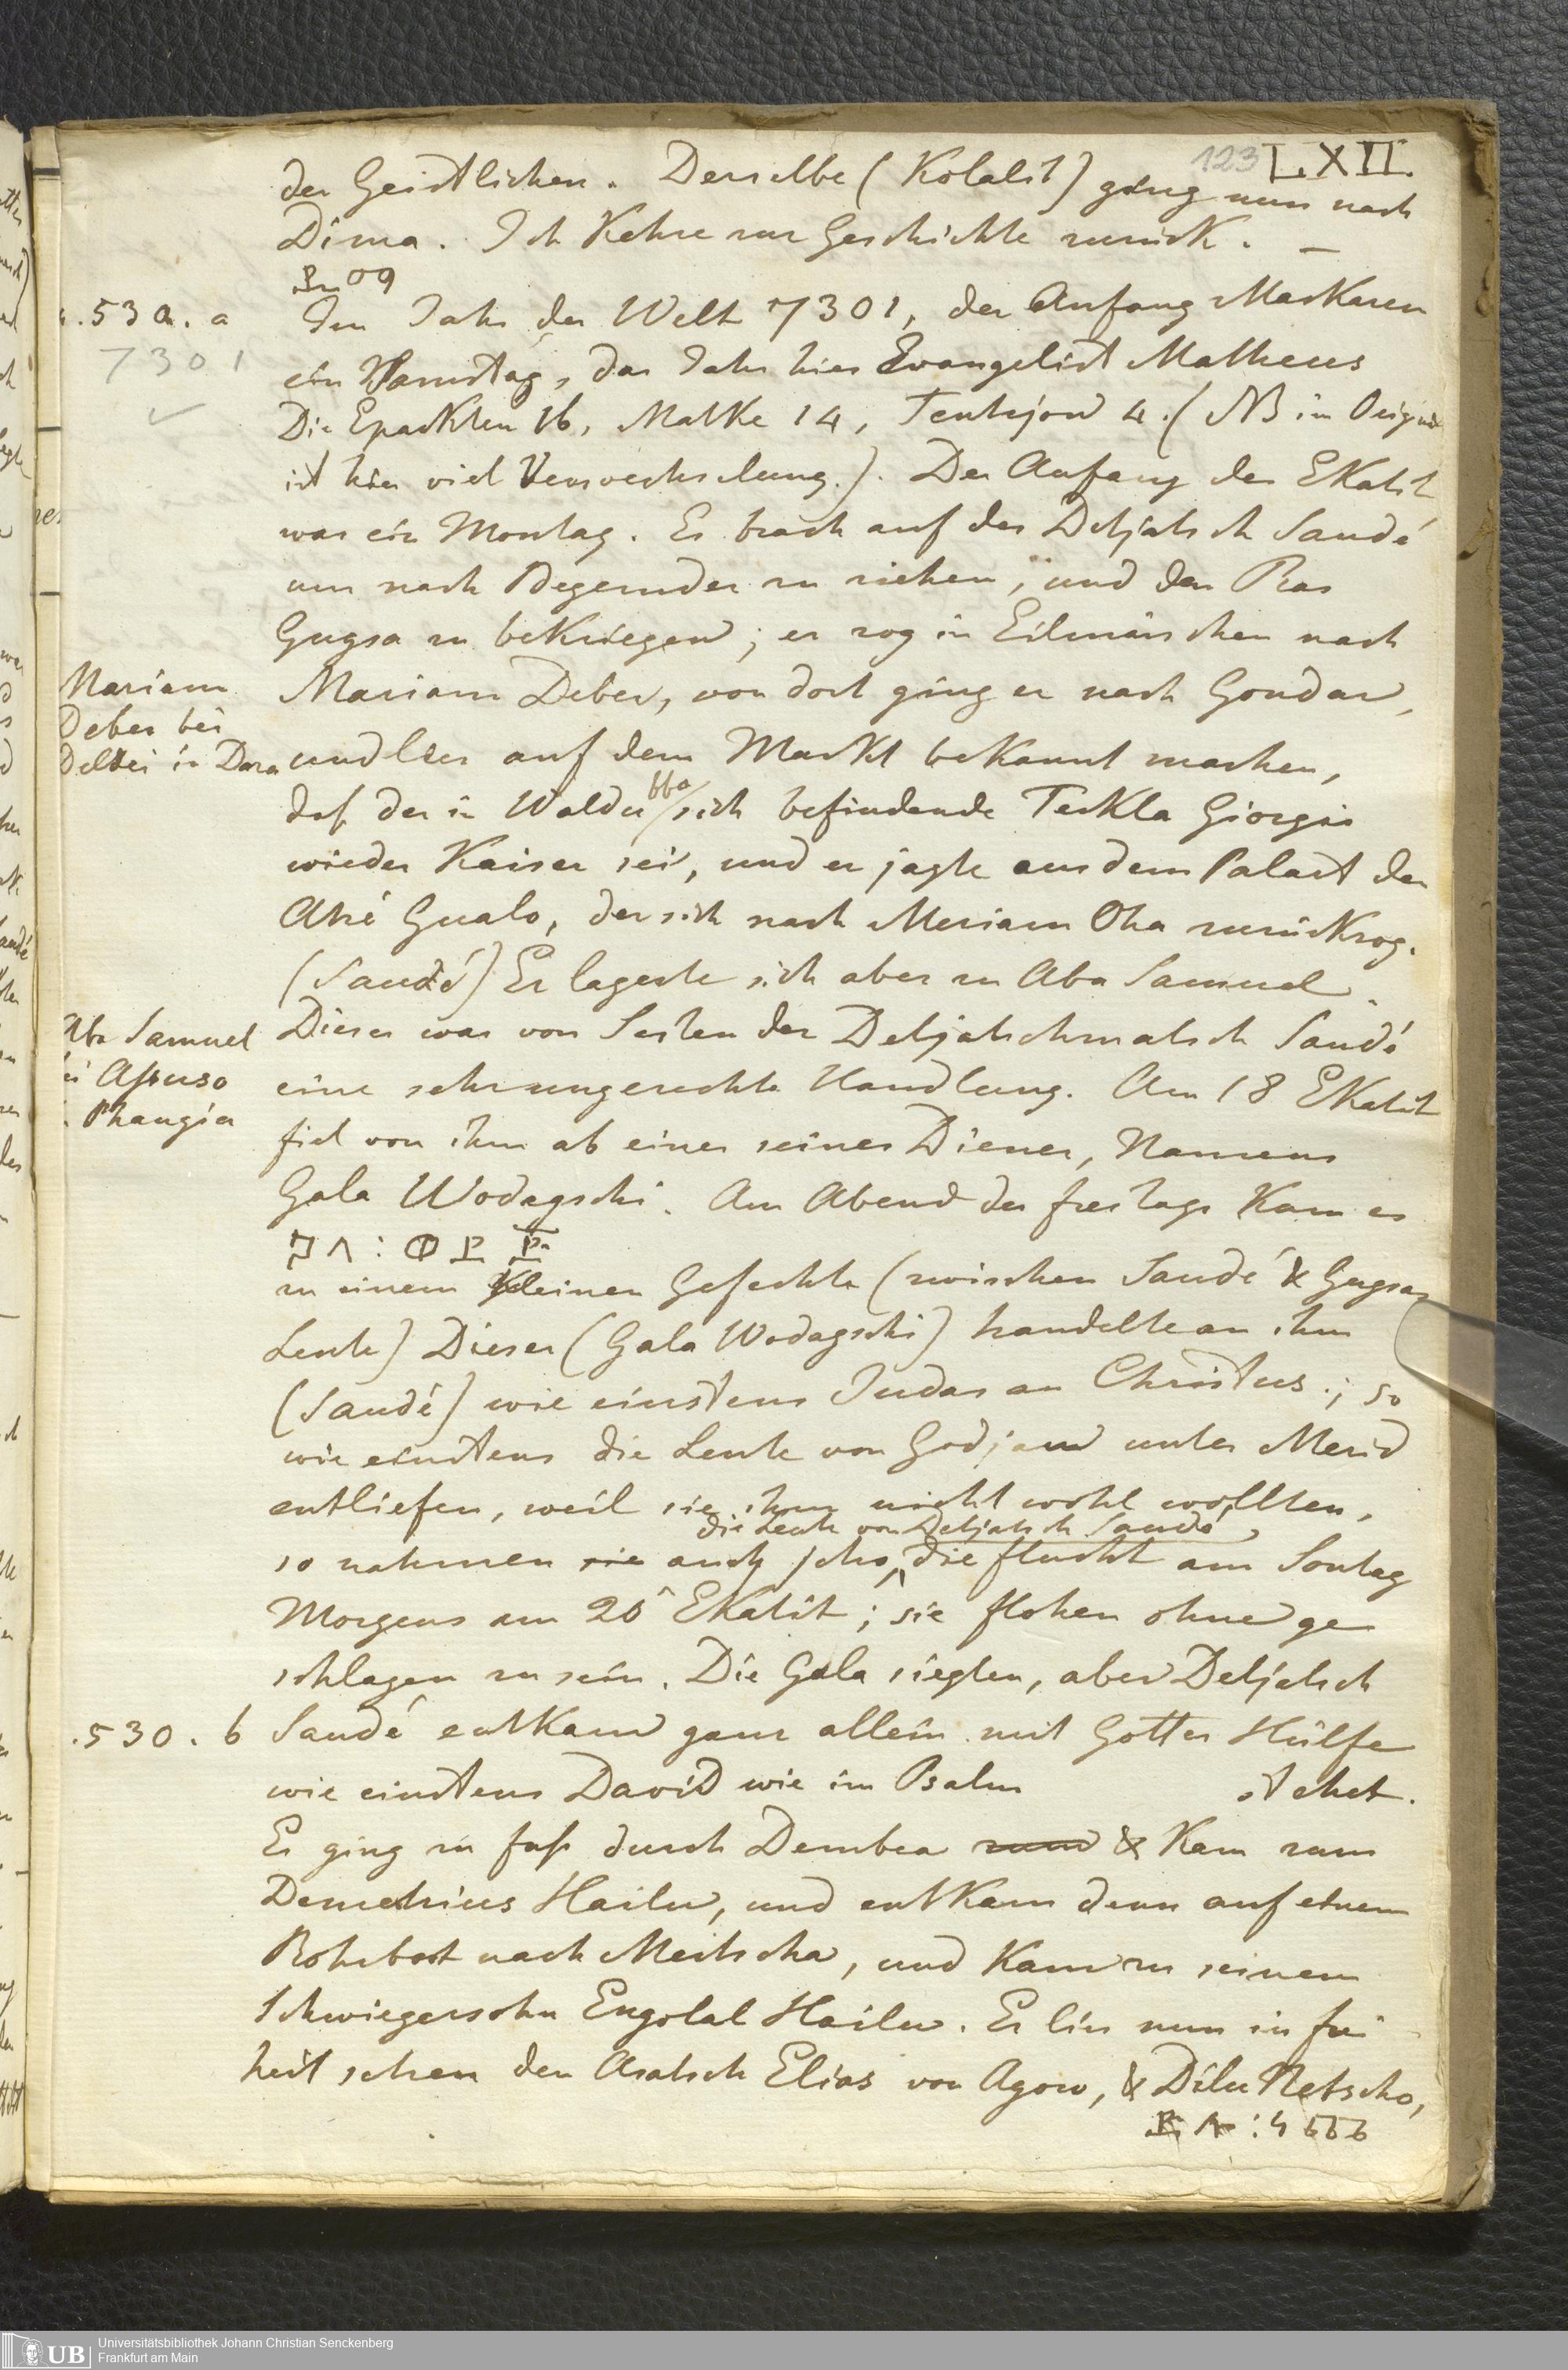 123 LXII.
der Geistlichen. Derselbe (Kolalit) ging nun nach
Dima. Ich Kehre zur Geschichte zurück. —
ዲማ
p. 530. a
7301
Im Jahr der Welt 7301, der Anfang Maskarem
ein Samstag, das Jahr hies Evangelist Matheus
Die Epackten 16, Matke 14, Tentejon 4. (NB im Original
ist hier viel Verwechslung.). Der Anfang des EKatit
war ein Montag. Es brach auf der Detjatsch Saudé
um nach Begemder zu ziehen, und den Ras
Gugsa zu beKriegen; er zog in Eilmärschen nach
Mariam
Deber bei
Deldei in Dara
Mariam Deber, von dort ging er nach Gondar,
und lies auf dem MarKt beKannt machen,
daß der in Waldubba sich befindende TecKla Giorgis
wieder Kaiser sei, und er jagte aus dem Palast den
Atzé Gualo, der sich nach Meriam Oha zurücKzog.
(Saudé) Er lagerte sich aber zu Aba Samuel.
Aba Samuel
bei Afsuso
Phangia
Dieses war von Seiten des Detjatschmatsch Saudé
eine sehr ungerechte Handlung. Am 18 EKatit
fiel von ihm ab einer seiner Diener, Namens
Gala Wodagschi. Am Abend des freitags Kam es
ጋላ፡ወዳጄ
zu einem Kleinen Gefechte (zwischen Saudé & Gugsas
Leute) Dieser (Gala Wodagschi) handelte an ihm
(Saudé) wie einstens Judas an Christus; so
wie einstens die Leute von Godjam unter Merid
entliefen, weil sie ihm nicht wohl wollten,
die Leute von Detjatsch Saudé
so nahmen sie auch jetzo die flucht am Sontag
Morgens am 20 EKatit; sie flohen ohne ge
schlagen zu sein. Die Gala siegten, aber Detjatsch
.530. b
Saudé entKam ganz allein mit Gottes Hülfe
wie einstens David wie im Psalm stehet.
Er ging zu fuß durch Dembea & Kam zum
Demetrius Hailu, und entKam dann auf einem
Rohrboot nach Meitscha, und Kam zu seinem
Schwiegersohn Engolal Hailu. Er lies nun in frei
heit setzen den Asatsch Elias von Agow, & Dilu Netscho,